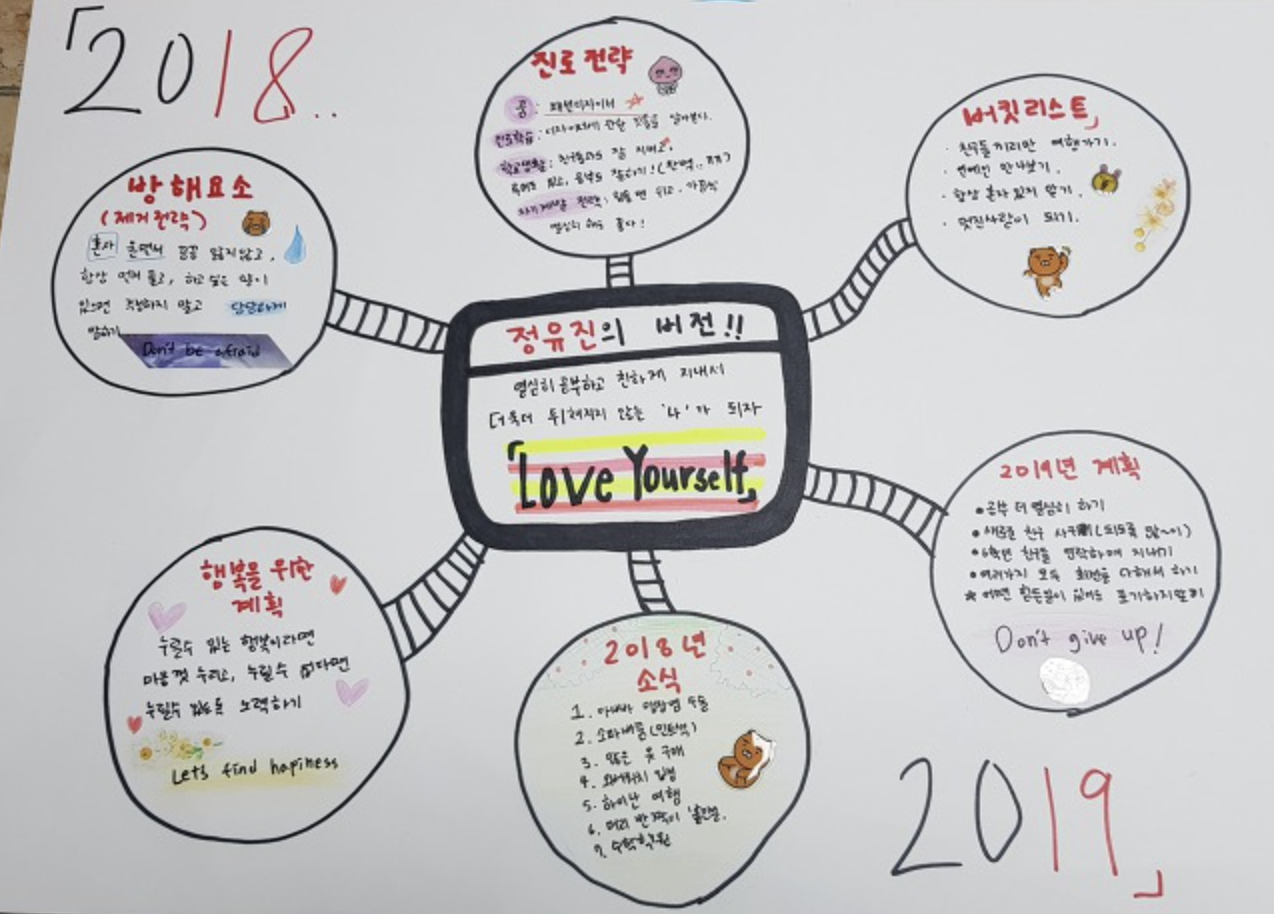 「2018..
진로 전략
꿈: 패션디자이너
진로학습: 디자이너에 관한 것들을 알아본다.
학교생활: 친구들과도 잘 지내고,
있고, 공부도 잘하기! (완벽..ㅠㅠ)
자기계발 전략: 힘들면 쉬고, 가끔씩
열심히 해도 좋다!
버킷리스트」
· 친구들끼리만 여행가기.
· 연예인 만나보기.
· 항상 혼자 있지 않기.
· 멋진사람이 되기.
방해요소
(제거 전략)
혼자 울면서 끙끙 앓지않고,
항상 먼저 풀고, 하고 싶은 말이
있으면 걱정하지 말고 당당하게
말하기
Don't be afraid
정유진의 버전!!
열심히 공부하고 친하게 지내서
더욱더 뒤쳐지지 않는 '나'가 되자
「Love Yourself」
2019년 계획
• 공부 더 열심히 하기
• 새로운 친구 사귀기 (되도록 많~이)
• 6학년 친구들 연락하며 지내기
• 여러가지 모두 최선을 다해서 하기
* 어떤 힘든일이 있어도 포기하지말기
Don't give up!
행복을 위한
계획
누릴수 있는 행복이라면
마음껏 누리고, 누릴수 없다면
누릴수 있도록 노력하기
Lets find hapiness
2018년
소식
1. 아빠 맹장염 수술
2. 소파바꿈 (민트색)
3. 많은 옷 구매
4. 입점
5. 하이난 여행
6. 머리 반쪽이
7. 수학학원
2019」